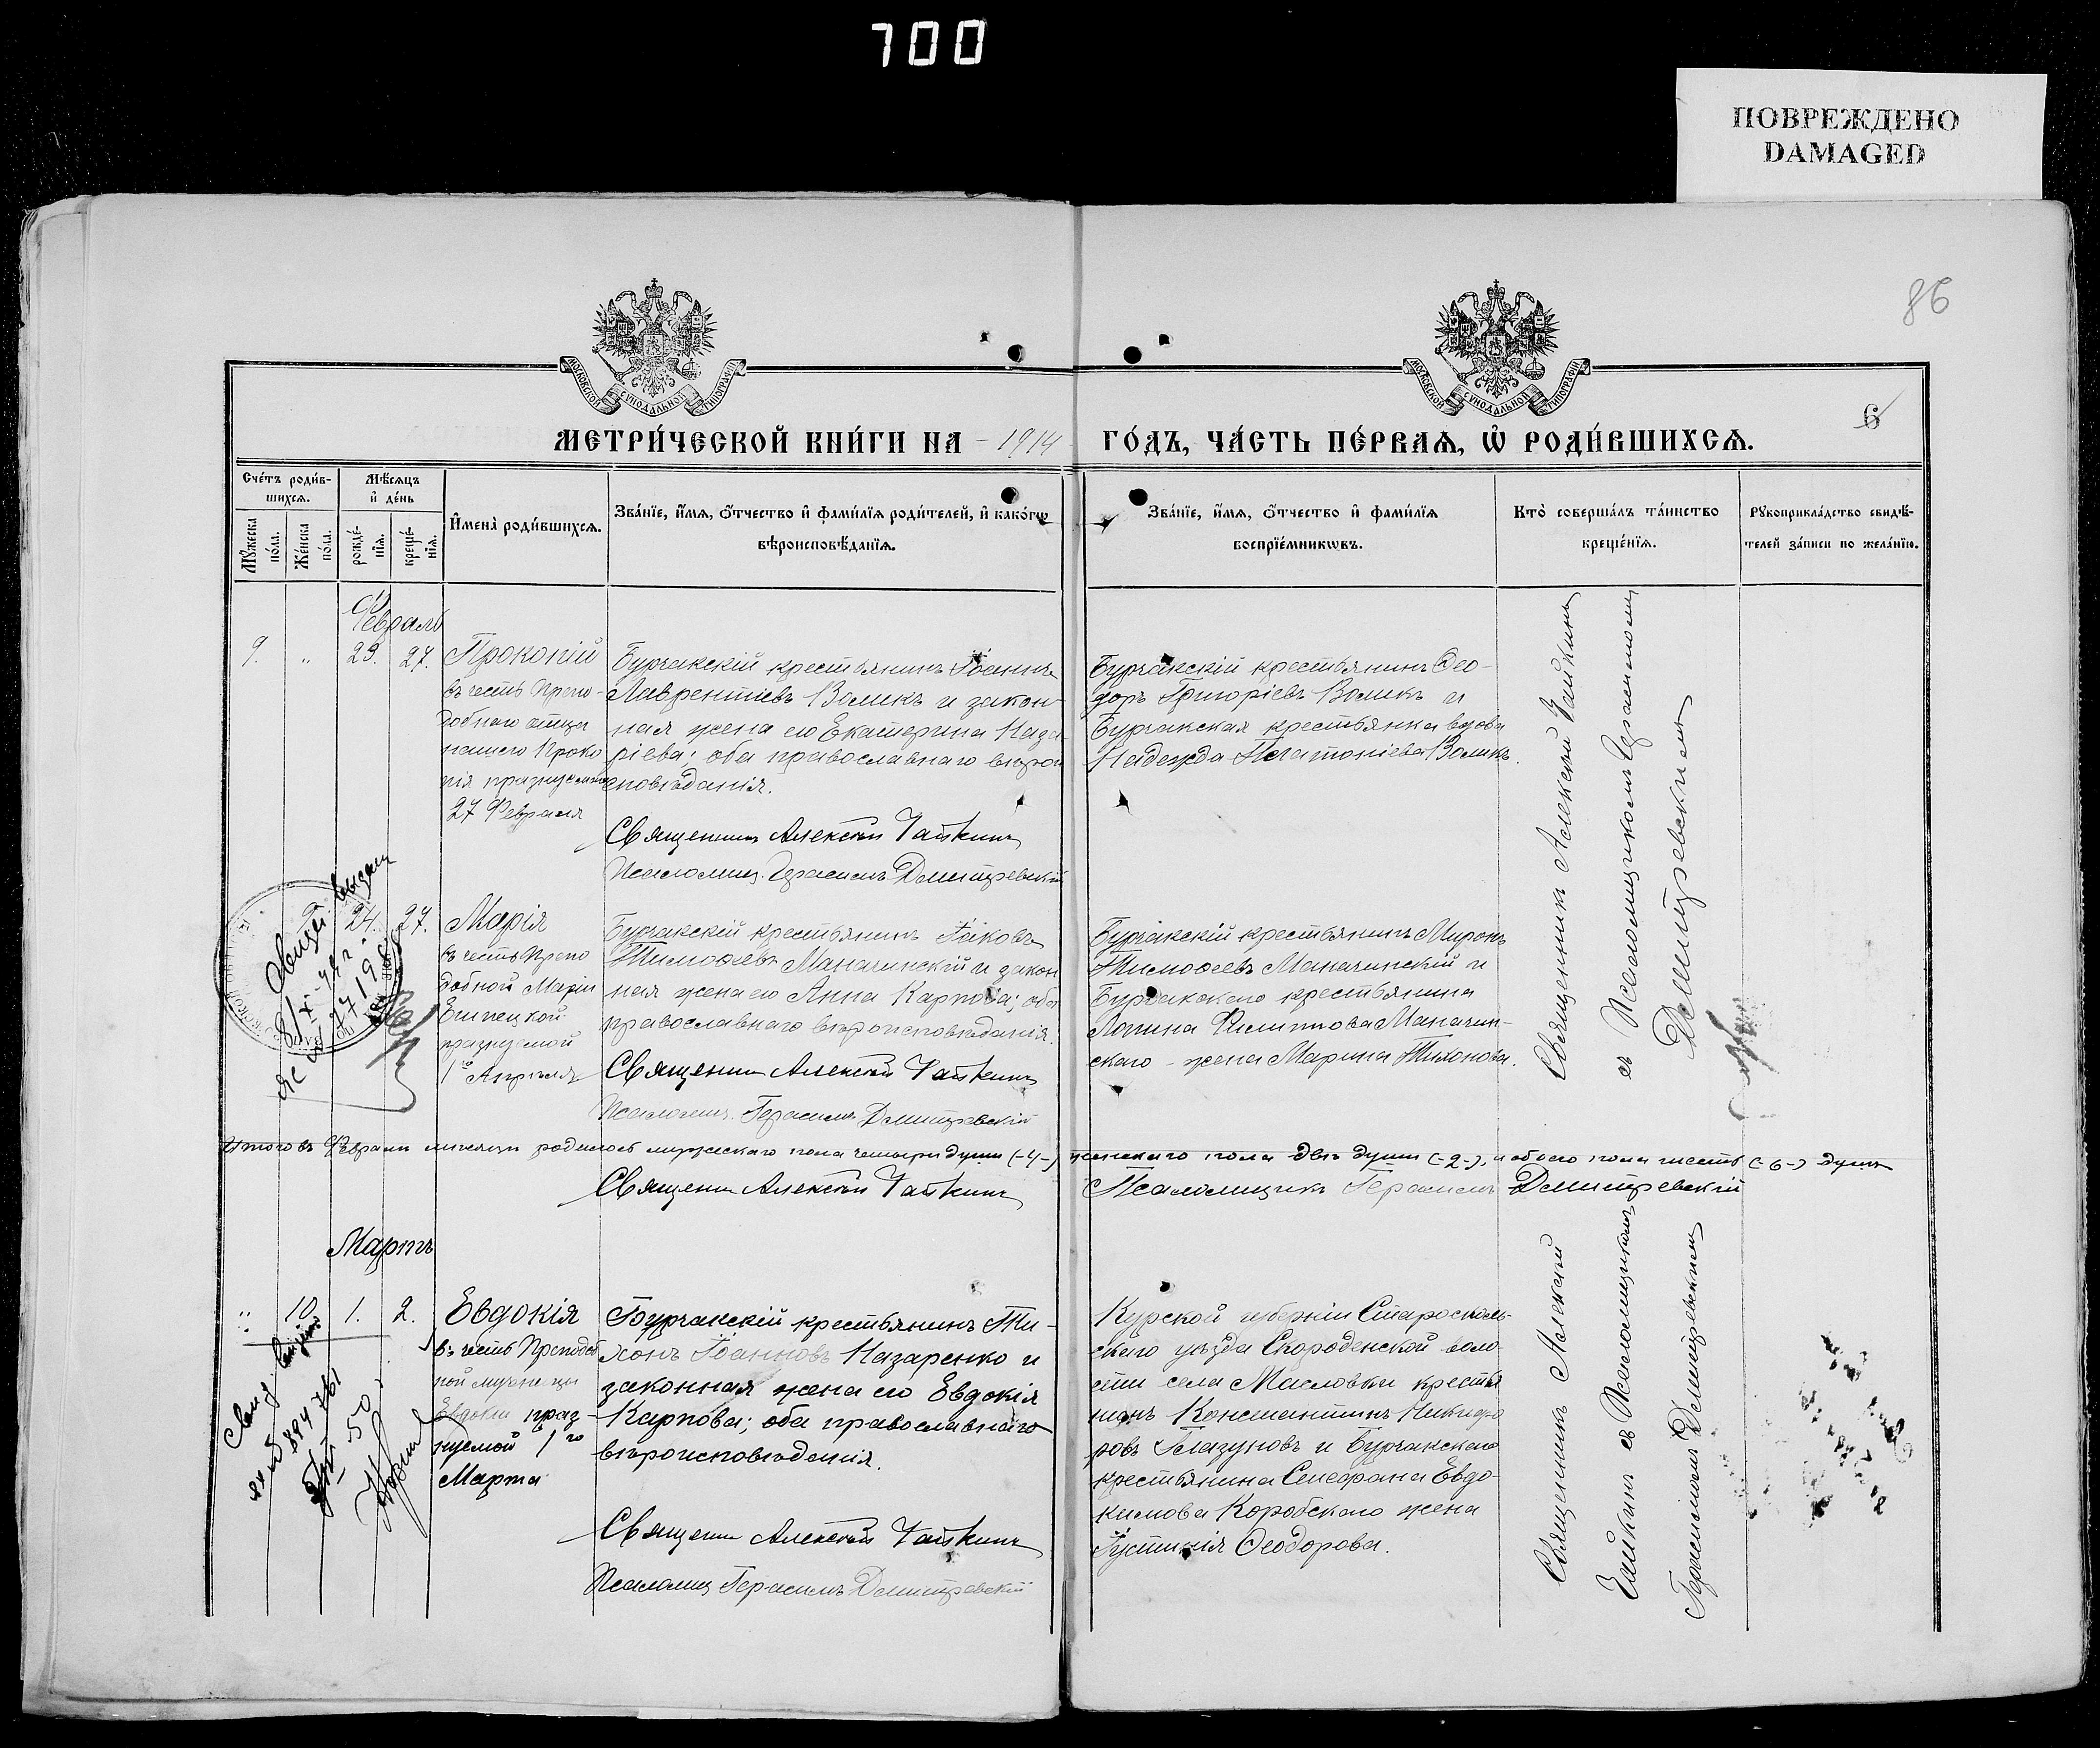 700
ПОВРЕЖДЕНО
DAMAGED
86
6
МОСКОВСКОЙ СУНОДАЛЬНОЙ ТИПОГРАФІИ
МОСКОВСКОЙ СУНОДАЛЬНОЙ ТИПОГРАФІИ
МЕТРИ́ЧЕСКОЙ КНИ́ГИ НА -1914- ГО́ДЪ, ЧА́СТЬ ПЕ́РВАѦ, Ѡ РОДИ́ВШИХСѦ.
Сче́тъ роди́в-
шихсѧ.
Мꙋжеска по́ла.
Же́нска по́ла.
Мѣ́сѧцъ
и҆ де́нь
рожде́-
нїѧ.
креще́-
нїѧ.
И҆мена̀ роди́вшихсѧ.
Зва́нїе, и҆́мѧ, о҆́тчество и҆ фами́лїѧ роди́телей, и҆ како́гѡ
вѣроисповѣ́данїѧ.
Зва́нїе, и҆́мѧ, о҆́тчество и҆ фами́лїѧ
воспрїе́мникѡвъ.
Кто̀ соверша́лъ та́инство
креще́нїѧ.
Рꙋкоприкла́дство свидѣ́-
телей за́писи по жела́нїю.
Февраль
9. " 23. 27. Прокопій
въ честь Препо-
добнаго отца
нашего Проко
пія празнуемаго
27 Февраля
Бурчакскій крестьянинъ Іоаннъ
Лаврентіевъ Воликъ и закон-
ная жена его Екатерина Наза-
ріева; оба православнаго вѣрои
сповѣданія.
Священникъ Алексѣй Чайкинъ
Псаломщ. Герасимъ Дмитревскій
Бурчакскій крестьянинъ Ѳео-
доръ Григоріевъ Воликъ и
Бурчакская крестьянка вдова
Надежда Воликъ.
Священникъ Алексѣй Чайкинъ
съ Псаломщикомъ Герасимомъ
Дмитревскимъ
9 24. 27. Марія
въ честь Препо
добной Маріи
Египецкой
празнуемой
1го Апрѣля
Бурчакскій крестьянинъ Іаковъ
Тимоѳеевъ Маначинскій и закон
ная жена его Анна Карпова; оба
православнаго вѣроисповѣданія.
Священникъ Алексѣй Чайкинъ
Псаломщ. Герасимъ Дмитревскій
Бурчакскій крестьянинъ Миронъ
Тимоѳеевъ Маначинскій и
Бурчакскаго крестьянина
Логина Филиппова Маначин-
скаго - жена Марина Тихонова.
Итого въ Феврали мѣсяцѣ родилось мужескаго пола четыри души (-4-) женскаго пола двѣ души (-2-), и обоего пола шесть (-6-) душъ
Священникъ Алексѣй Чайкинъ
Псаломщикъ Герасимъ Дмитревскій
Мартъ
" 10. 1. 2. Евдокія
въ честь Преподоб
ной мученицы
Евдокіи праз-
нуемой 1го
Марта
Бурчакскій крестьянинъ Ти-
хонъ Іоанновъ Назаренко и
законная жена его Евдокія
Карпова; оба православнаго
вѣроисповѣданія.
Священникъ Алексѣй Чайкинъ
Псаломщ Герасимъ Дмитревскій
Курской губерніи Староосколь-
скаго уѣзда Скороденской воло
сти села Масловки крестья
нинъ Константинъ Никифо
ровъ Глазуновъ и Бурчакскаго
крестьянина Стефана Евдо-
кимова Коробскаго жена
Іустинія Ѳеодорова.
Священникъ Алексѣй
Чайкинъ съ Псаломщикомъ
Герасимомъ Дмитревскимъ